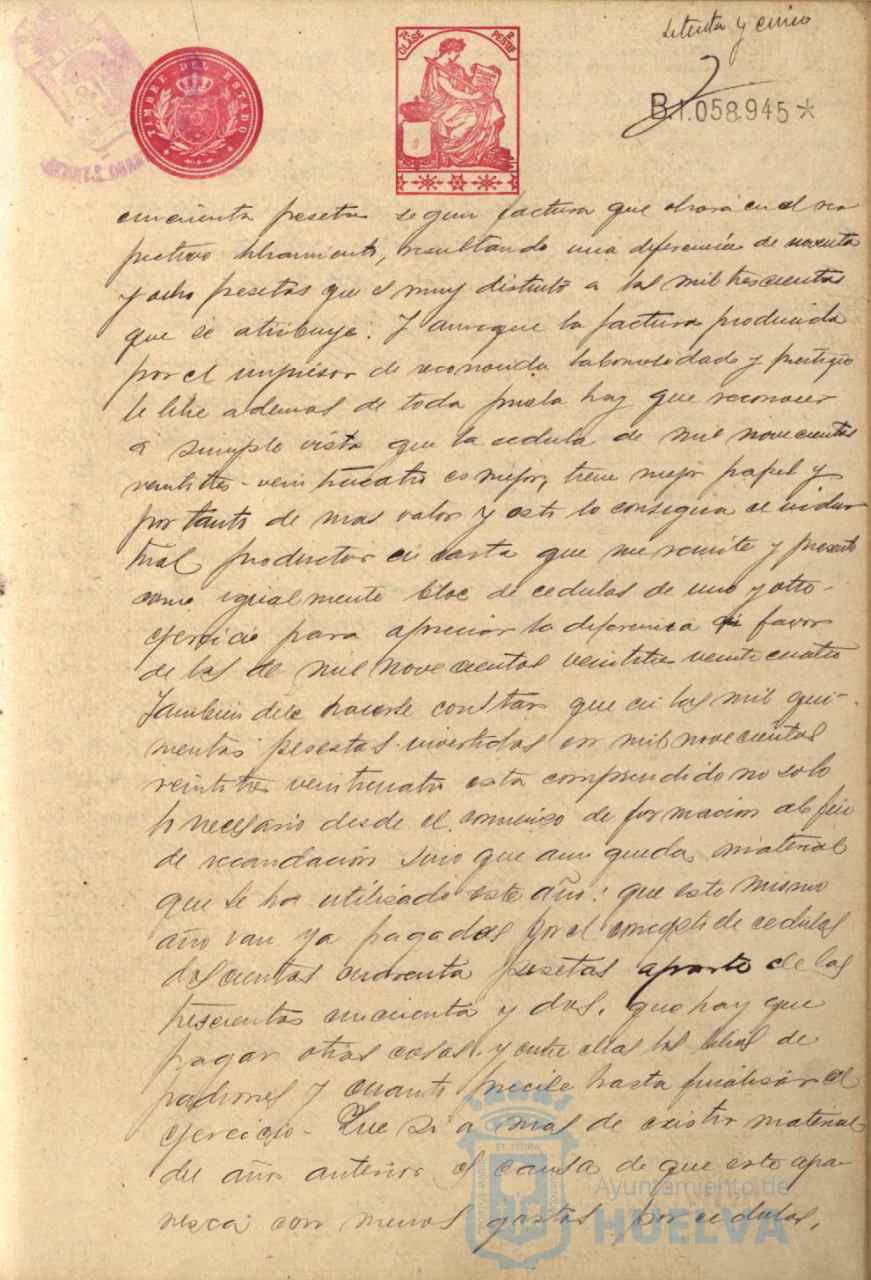 setenta y cinco
TIMBRE DEL ESTADO
7ª CLASE 2 PESETAS
B.1.058.945*
cincuenta pesetas segun factura que obrará en el res
pectivo libramiento, resultando una diferencia de noventa
y ocho pesetas que es muy distinto a las mil trescientas
que se atribuye. Y aunque la factura producida
por el impresor de reconocida laboriosidad y prestigio
le libre ademas de toda prueba hay que reconocer
a simple vista que la cedula de mil novecientos
veintitres-veinticuatro es mejor, tiene mejor papel y
por tanto de mas valor y esto lo consigna el indus
trial productor en carta que me remite y presento
como igualmente bloc de cedulas de uno y otro
ejercicio para apreciar la diferencia a favor
de las de mil novecientos veintitres veinticuatro
Tambien debe hacerse constar que en las mil qui-
nientas pesestas invertidas en mil novecientos
veintitres veinticuatro esta comprendido no solo
lo necesario desde el comienzo de formacion al fin
de recaudación sino que aun queda material
que se ha utilizado este año: que este mismo
año van ya pagadas por el concepto de cedulas
doscientas cuarenta pesetas aparte de las
trescientas cincuenta y dos, que hay que
pagar otras cosas y entre ellas los libros de
padrones y cuanto precise hasta finalizar el
ejercicio- Que si a mas de existir material
del año anterior es causa de que este apa-
resca con menos gastos por cedulas,
PORTUS MARIS ET TERRA CUSTODIA
Ayuntamiento de
HUELVA